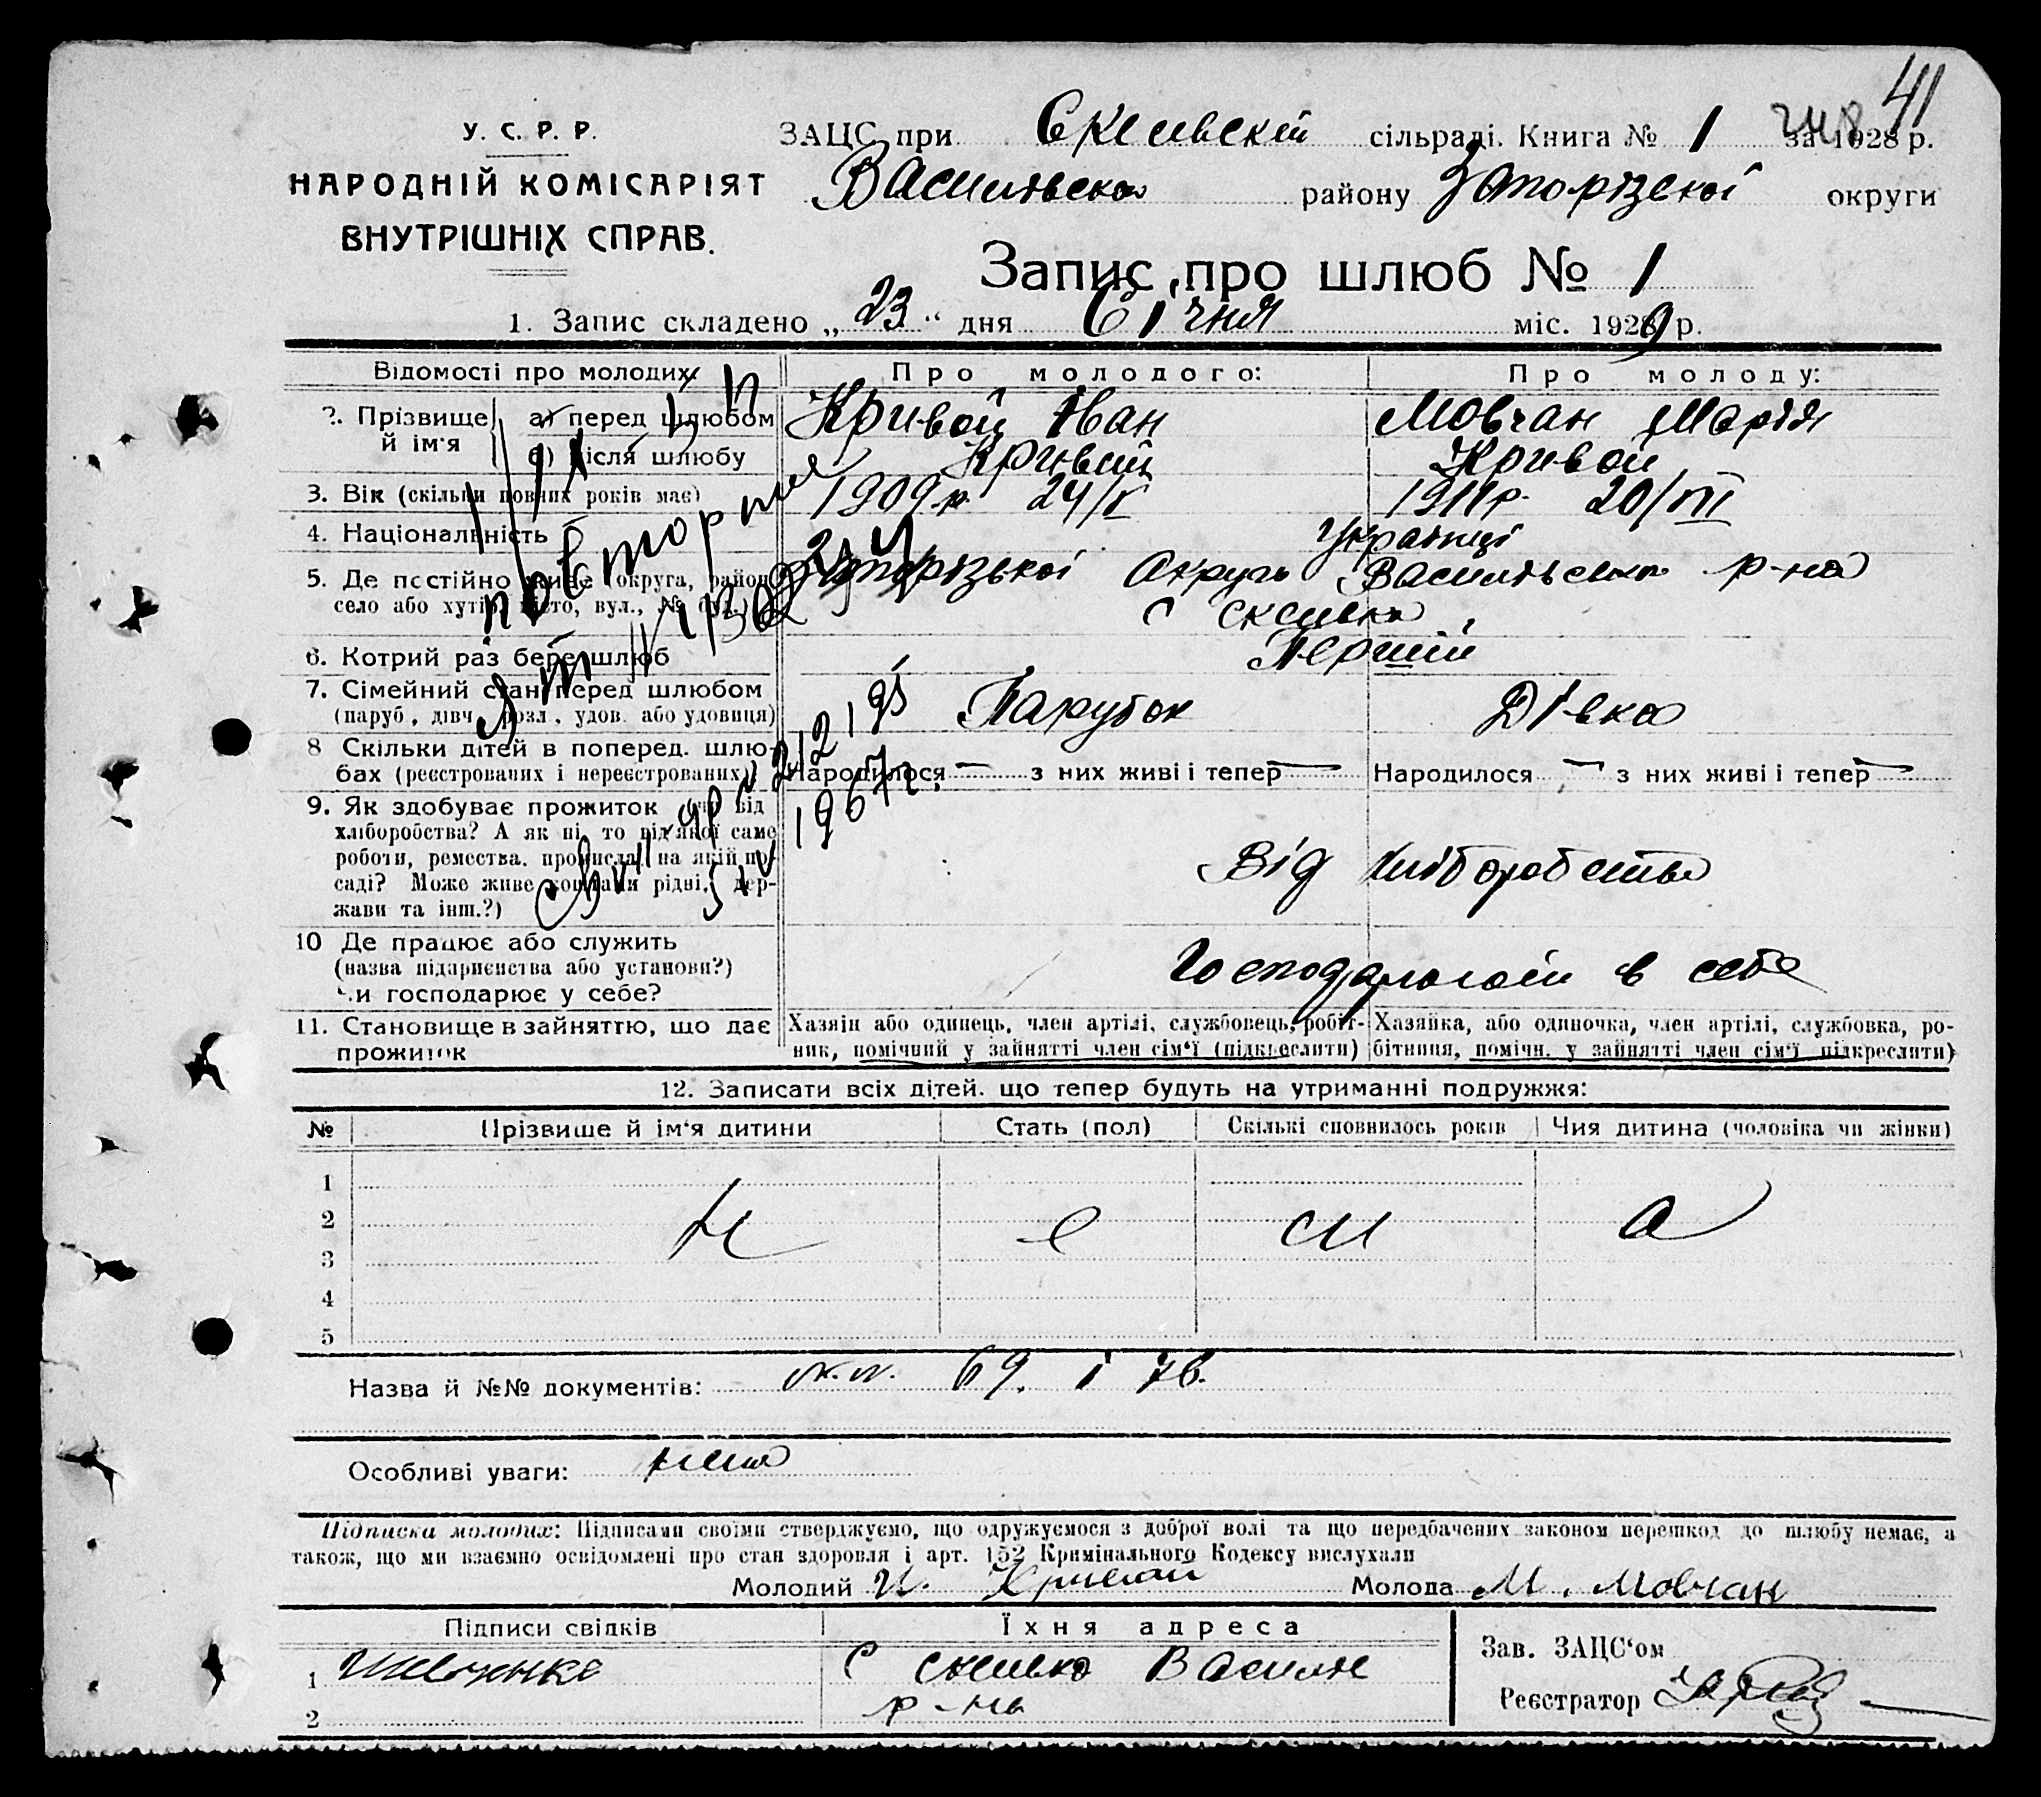 41
У. С. Р. Р.
НАРОДНІЙ КОМІСАРІЯТ
ВНУТРІШНІХ СПРАВ.
ЗАЦС при Скелевскій сільраді. Книга № 1 за 1928 р.
Василівско району Запорізскої округи
Запис про шлюб № 1
1. Запис складено „ 23 “ дня Січня міс. 1929 р.
Відомості про молодих Про молодого: Про молоду:
2. Прізвище й ім'я
а) перед шлюбом Кривой Іван Мовчан Марія
б) після шлюбу Кривий Кривой
3. Вік (скільки повних років має) 1909 р. 24/V 1911 р. 20/III
4. Національність Українці
5. Де постійно живе (округа, район, Запорізької Округи Василівско р-на
село або хутір, місто, вул., № буд.) с Скелька
6. Котрий раз бере шлюб Перший
7. Сімейний стан перед шлюбом Парубок Дівка
(паруб., дівч., розл., удов. або удовиця)
8 Скільки дітей в поперед. шлю-
бах (реєстрованих і нереєстрованих) Народилося — з них живі і тепер — Народилося — з них живі і тепер —
9. Як здобуває прожиток (чи від
хліборобства? А як ні, то від якої саме
роботи, ремества, промисла, на якій по- Від хліборобства
саді? Може живе коштами рідні, дер-
жави та інш.?)
10 Де працює або служить
(назва підприємства або установи?) Господарюють в себе
Чи господарює у себе?
11. Становище в зайняттю, що дає Хазяін або одинець, член артілі, службовець, робіт- Хазяйка, або одиночка, член артілі, службовка, ро-
прожиток ник, помічний у зайнятті член сім'ї (підкреслити) бітниця, помічн. у зайнятті член сім'ї підкреслити)
повторне
1967 г.
12. Записати всіх дітей. що тепер будуть на утриманні подружжя:
№ Прізвище й ім'я дитини Стать (пол) Скількі сповнилось років Чия дитина (чоловіка чи жінки)
1
2 Н е м а
3
4
5
Назва й №№ документів: 69. і 78.
Особливі уваги: нема
Підписка молодих: Підписами своїми стверджуємо, що одружуємося з доброї волі та що передбачених законом перешкод до шлюбу немає, а
також, що ми взаємно освідомлені про стан здоровля і арт. 152 Кримінального Кодексу вислухали
Молодий И. Кривой Молода М. Мовчан
Підписи свідків Їхня адреса
1 Шевченко С Скелька Василів
р-на
2
Зав. ЗАЦС'ом
Реєстратор